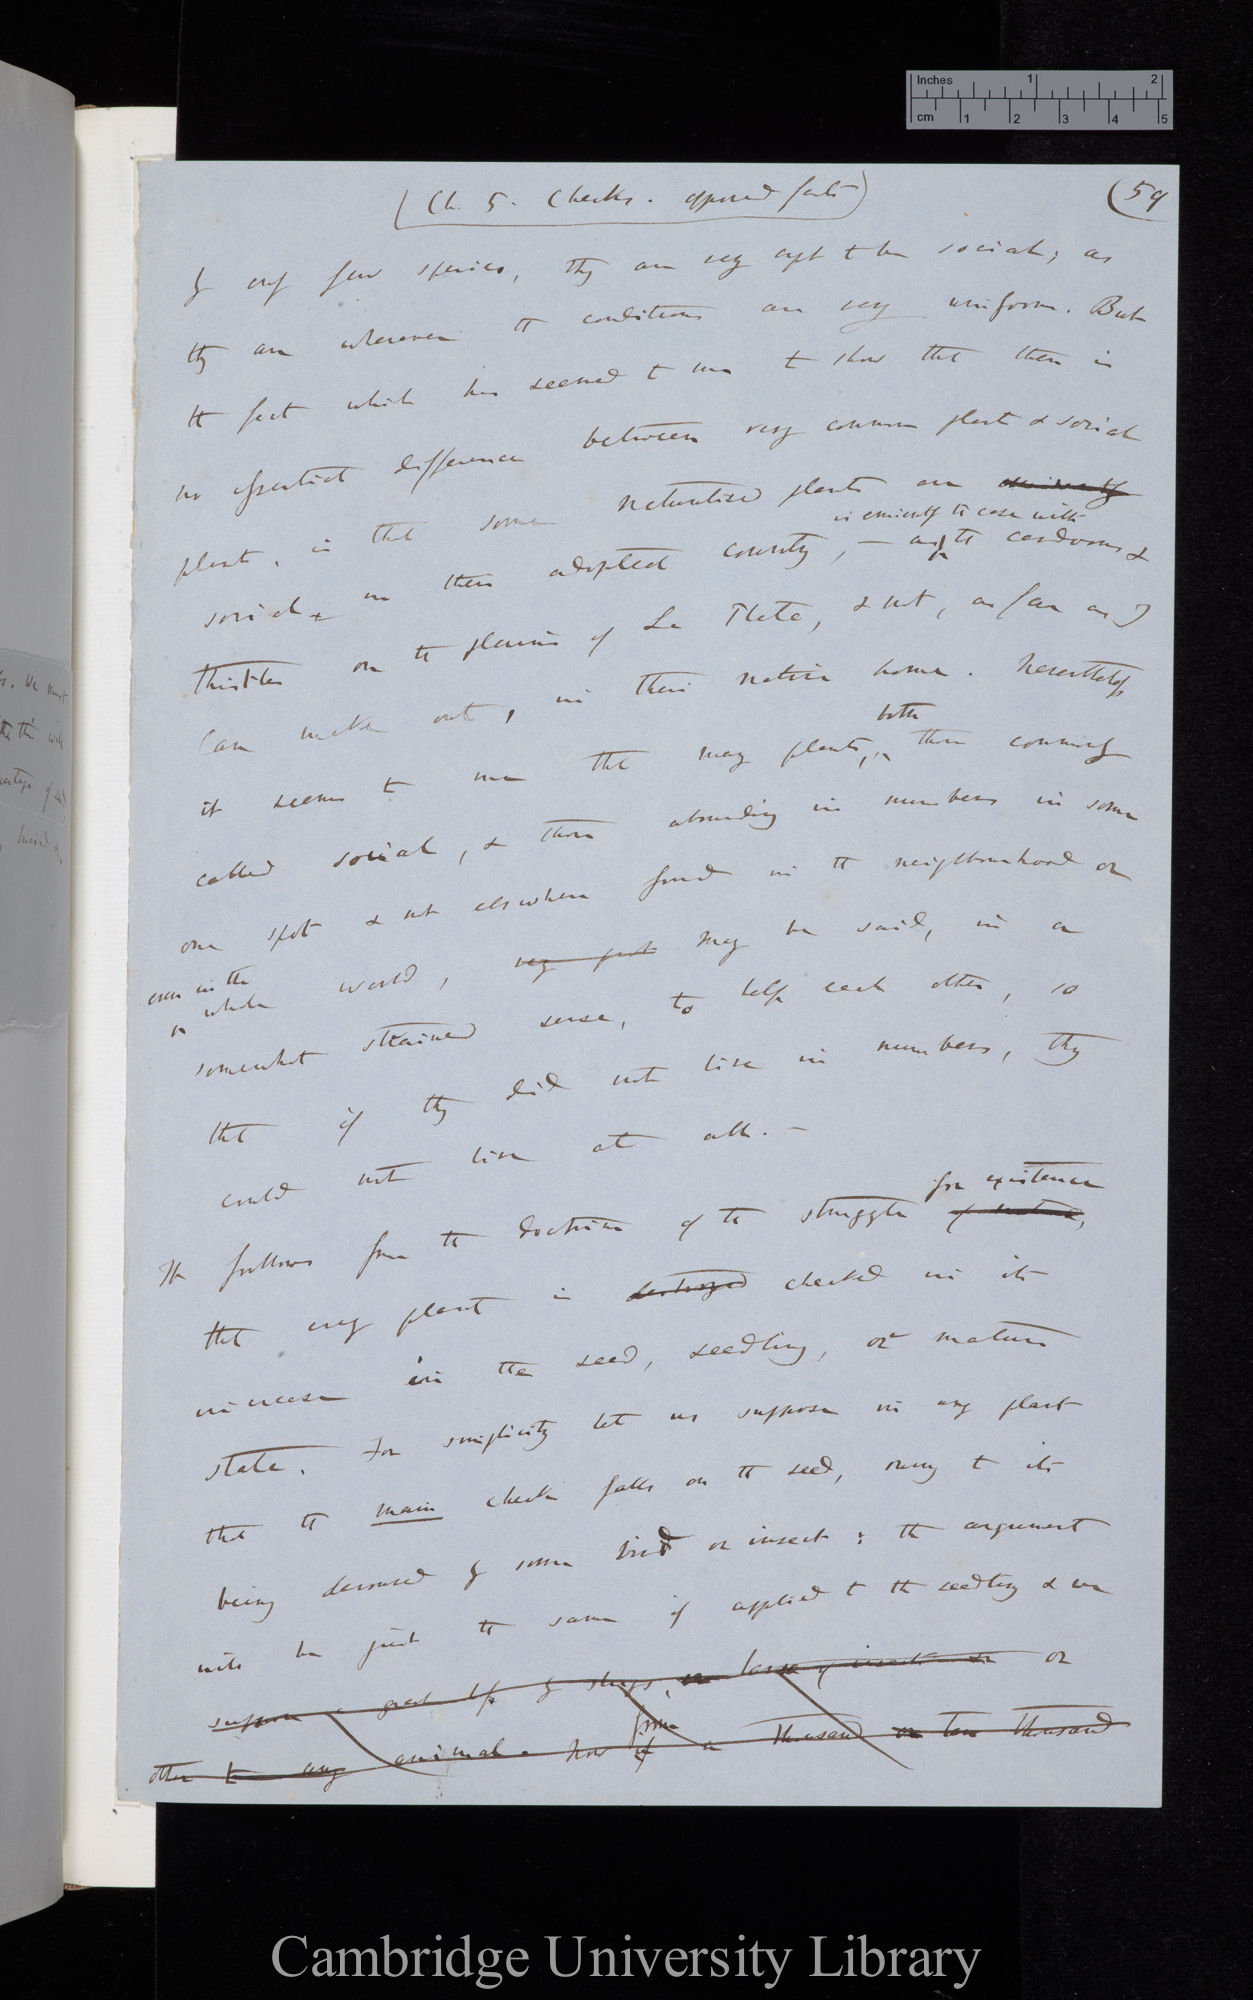 Inches 1 2
cm 1 2 3 4 5
(Ch. 5. Checks. opposed facts)
(59
by only few species, they are very apt to be social; as
they are wherever the conditions are very uniform. But
the fact which has seemed to me to show that there is
no essential difference between very common plants & social
plants, is that some naturalised plants are
is eminently the case with
social in their adopted country, — as the cardoons &
thistles on the plains of La Plata, & not, as far as I
can make out, in their native home. Nevertheless
both
it seems to me that many plants, those commonly
called social, & those abounding in numbers in some
one spot & not elsewhere found in the neighbourhood or
even in the
whole world, may be said, in a
somewhat strained sense, to help each other, so
that if they did not live in numbers, they
could not live at all. —
for existence
It follows from the doctrine of the struggle of nature,
that every plant is destroyed checked in its
increase in the seed, seedling, or mature
state. For simplicity let us suppose in any plant
that the main check falls on the seed, owing to its
being devoured by some bird or insect: the argument
will be just the same if applied to the seedling & we
suppose a great by slugs, or larvæ of insects or
from
other to any animal. Now if a thousand or ten thousand
Cambridge University Library